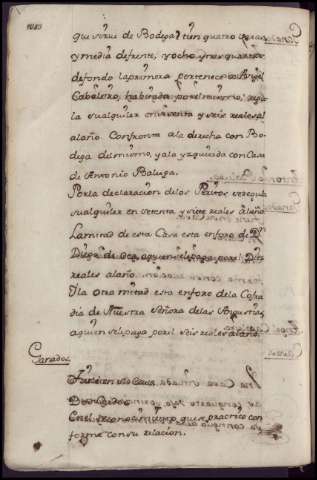 que sirve de Bodega, tien quatro varas
y media de frente, y ocho y tres quartas
de fondo la primera pertenece a Angel
Caballero, habitada por el mismo, regu-
la su alquiler en treinta y seis reales al
al año. Confronta a la derecha con Bo-
dega del mismo, y a la yzquierda con Casa
de Antonio Baluja.
Por la declaracion de los Peritos se regula
su alquiler en setenta y siete reales al año.
La mitad de esta Casa esta en foro de Dn
Diego de Oca, a quien se le paga por el diez
reales al año.
Y la otra mitad esta en foro de la Cofra-
dia de Nuestra Señora de las Angustias,
a quien se le paga por el seis reales al año.
Ganados
Tiene en su Casa
En el reconocimiento que se practicó con-
forme con su relacion.